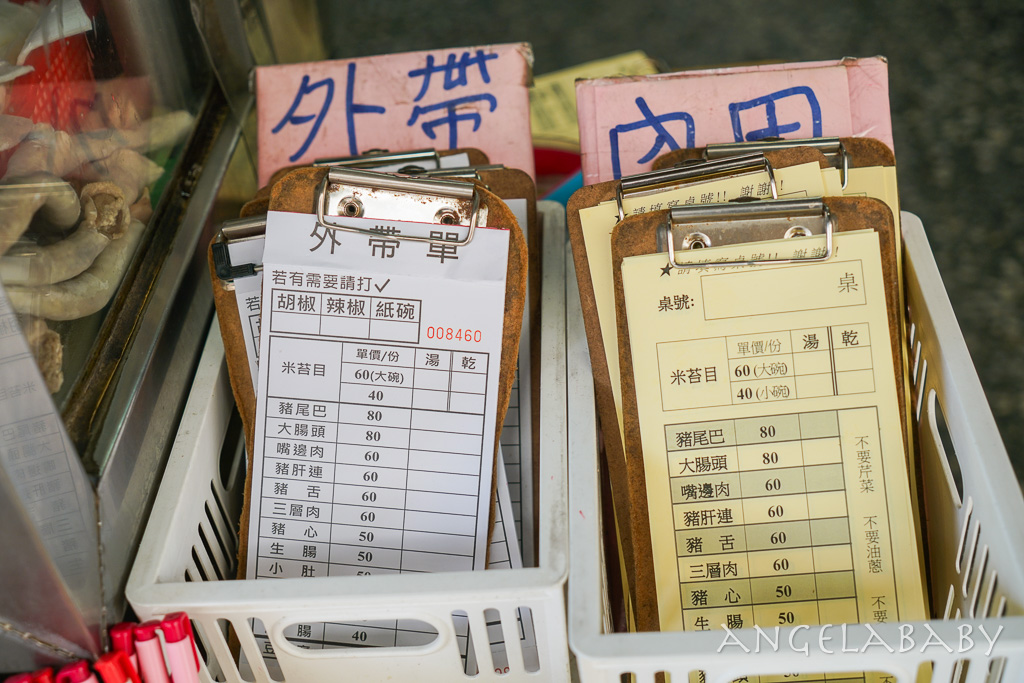 外帶
內用
外帶單
若有需要請打✓
胡椒 辣椒 紙碗
008460
米苔目 單價/份 湯 乾
60(大碗)
40
豬尾巴 80
大腸頭 80
嘴邊肉 60
豬肝連 60
豬舌 60
三層肉 60
豬心 50
生腸 50
小肚 50
腸 40
請填寫桌號!! 謝謝!
★請填寫桌號!! 謝謝!
桌號: 桌
米苔目 單價/份 湯 乾
60(大碗)
40(小碗)
豬尾巴 80
大腸頭 80
嘴邊肉 60
豬肝連 60
豬舌 60
三層肉 60
豬心 50
生腸 50
不要芹菜
不要油蔥
不要
若有
胡
ANGELABABY